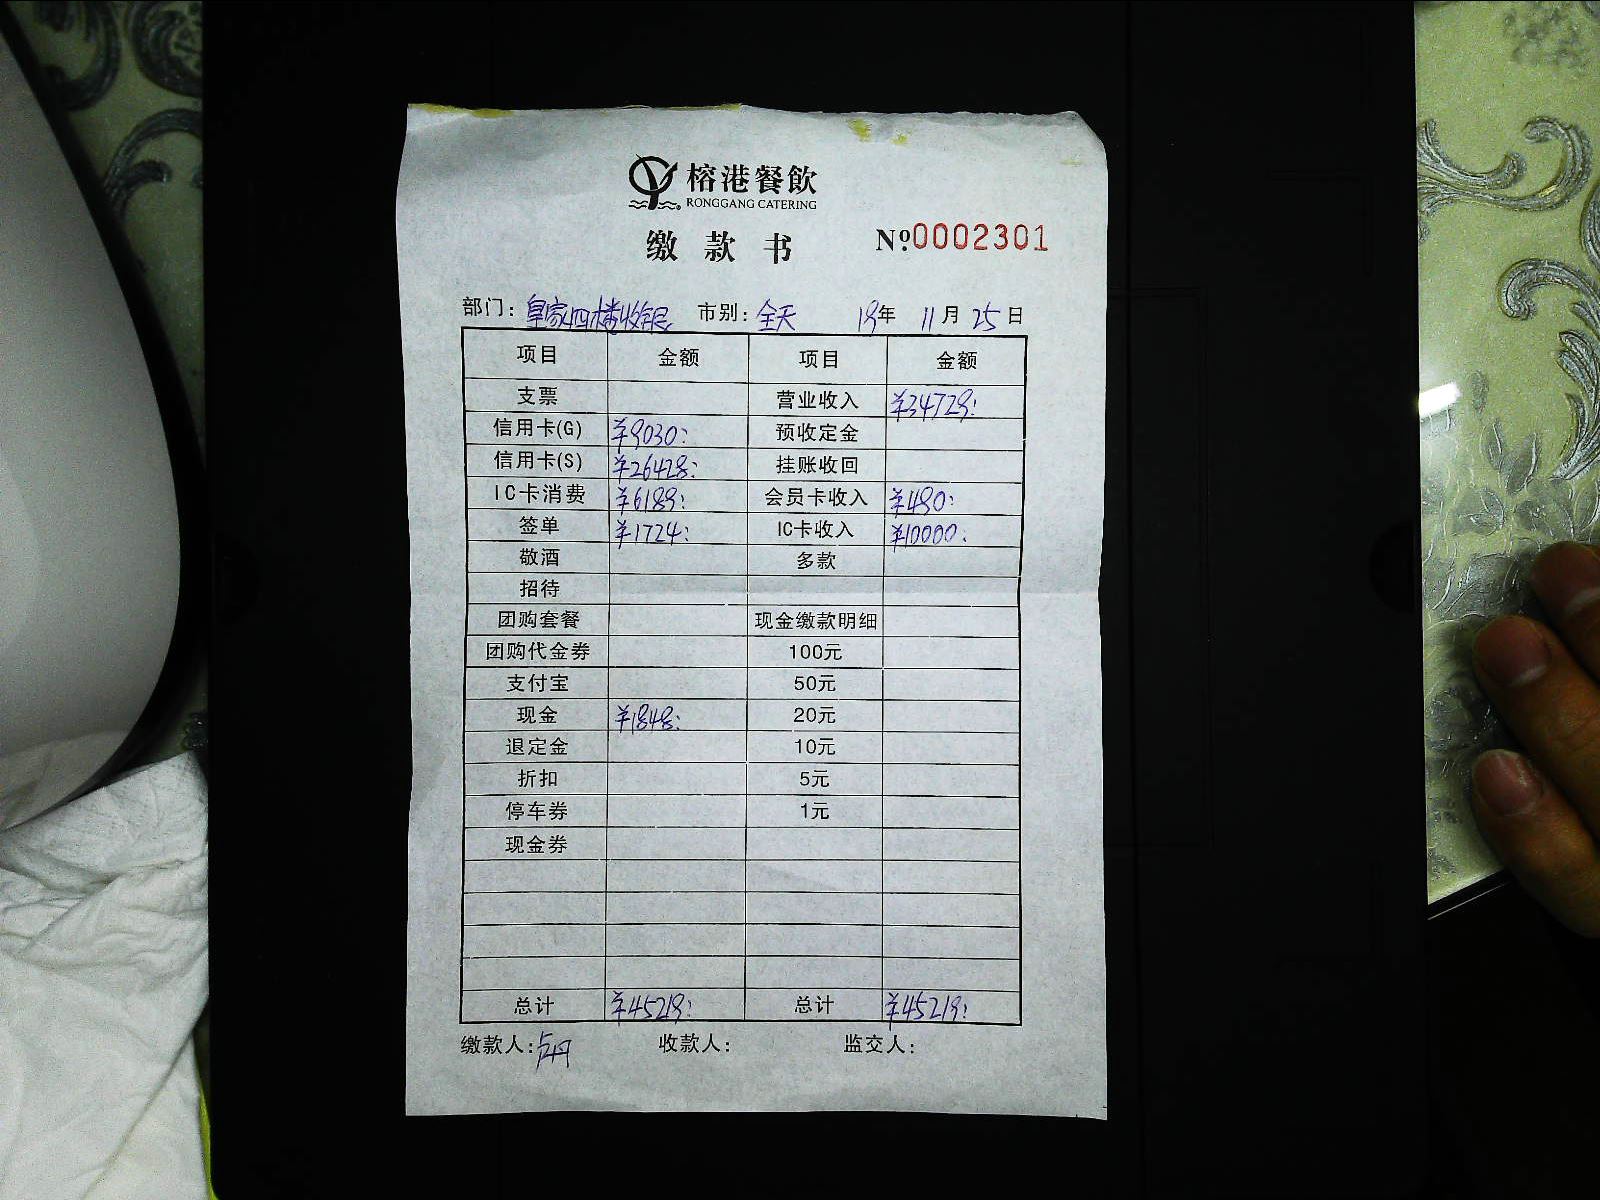 榕港餐飲
RONGGANG CATERING
缴款书 №0002301
部门：皇家四楼收银 市别：全天 19年 11月 25日
项目 金额 项目 金额
支票 营业收入 ¥34729:
信用卡(G) ¥9030: 预收定金
信用卡(S) ¥26428: 挂账收回
IC卡消费 ¥6189: 会员卡收入 ¥490:
签单 ¥1724: IC卡收入 ¥10000:
敬酒 多款
招待
团购套餐 现金缴款明细
团购代金券 100元
支付宝 50元
现金 ¥1848: 20元
退定金 10元
折扣 5元
停车券 1元
现金券
总计 ¥45219: 总计 ¥45219:
缴款人: 收款人: 监交人: